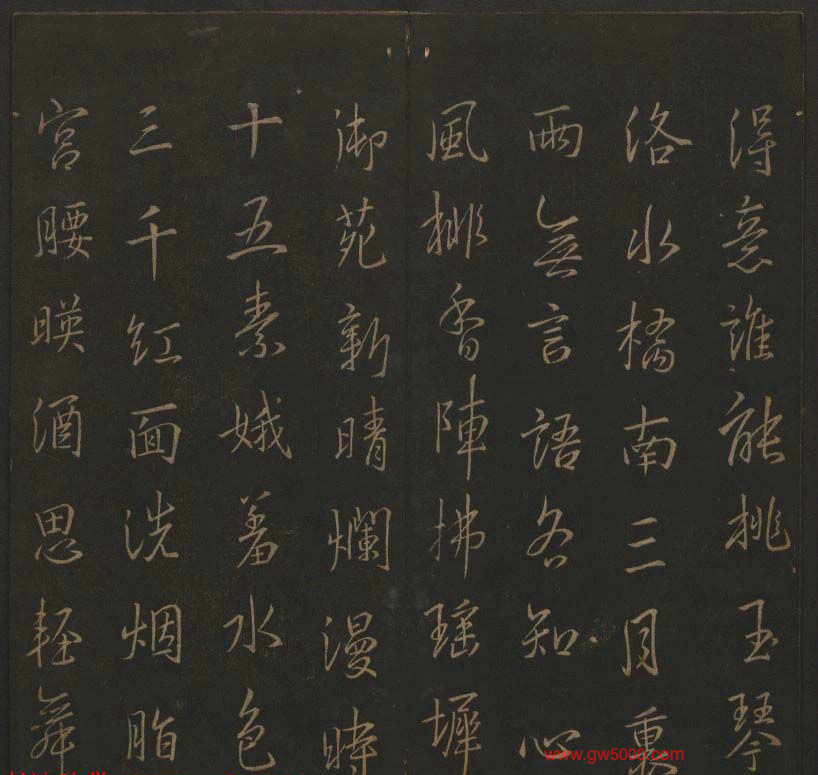 得意誰能挑玉琴
洛水橋南三月
兩無言語各知心
風排香陣拂瑤墀
御苑新晴爛漫時
十五素娥羞水色
三千紅面洗烟脂
宮腰暎酒思輕舞
www.gw5000.com